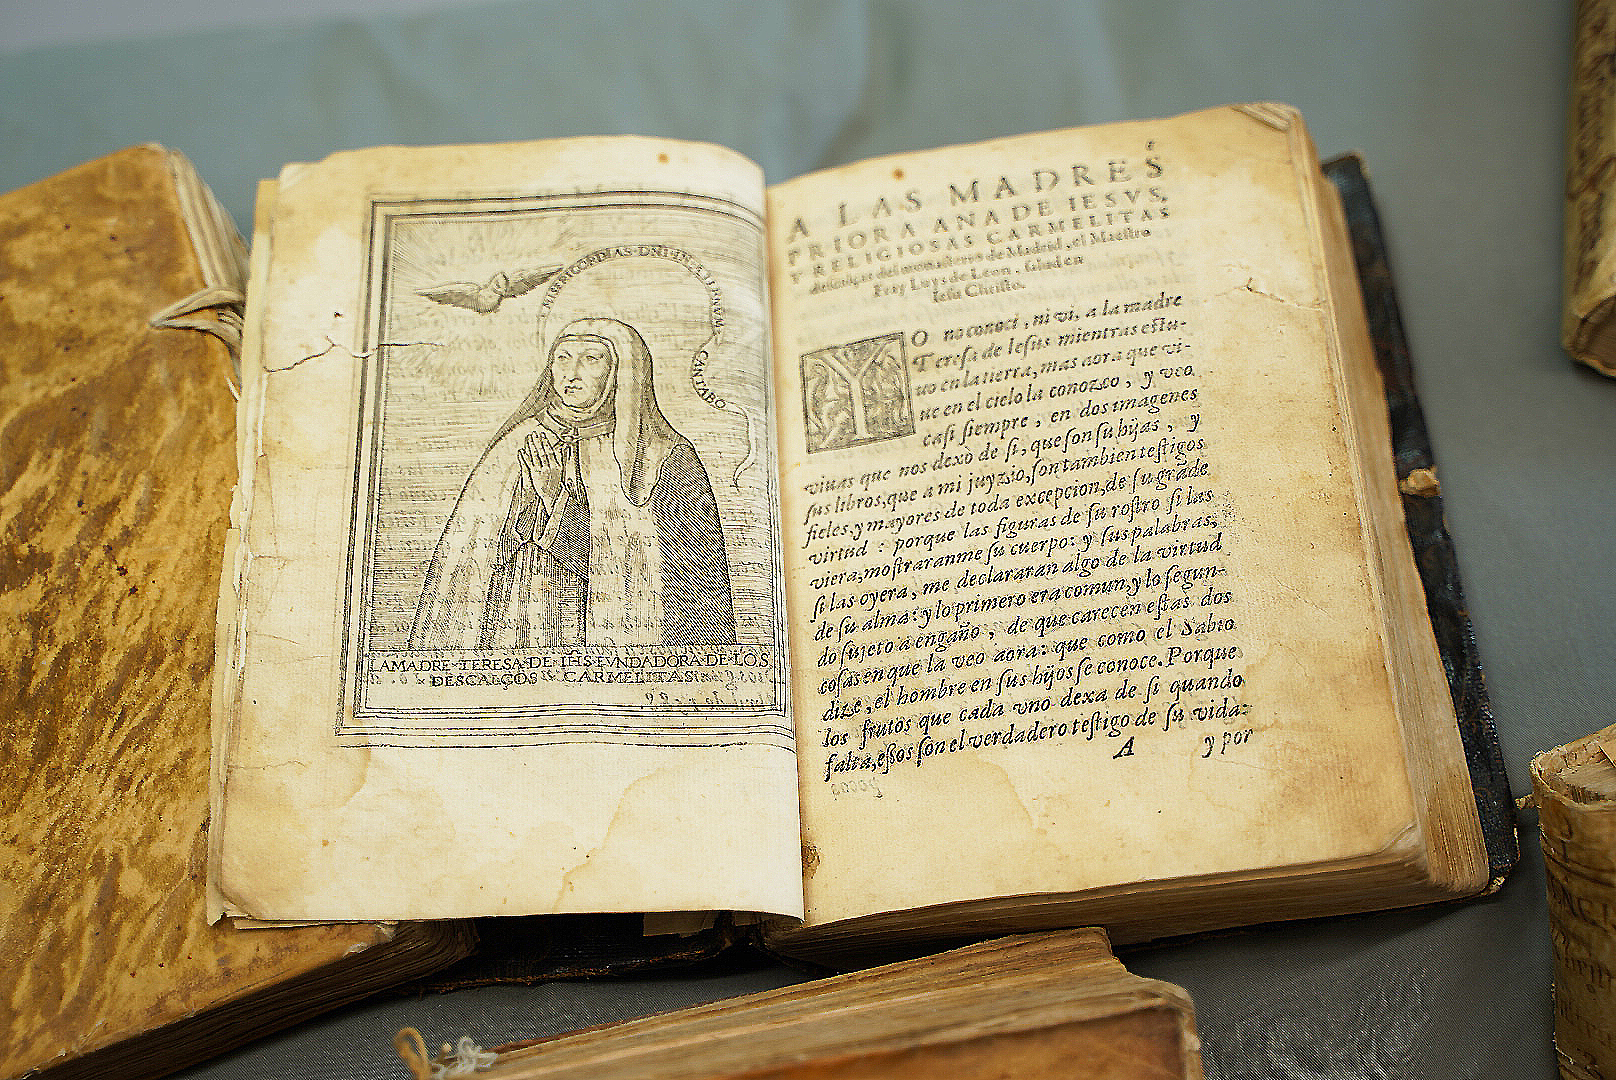 MISERICORDIAS·DNI·IN·ÆTERNVM·
CANTABO
LAMADRE·TERESA·DE·IHS·FVNDADORA·DE·LOS
DESCALÇOS CARMELITAS
A LAS MADRES
PRIORA ANA DE IESVS,
Y RELIGIOSAS CARMELITAS
descalças del monasterio de Madrid, el Maestro
Fray Luys de Leon, salud en
Iesu Christo.
YO no conoci, ni vi, a la madre
Teresa de Iesus mientras estu-
uo en la tierra, mas aora que vi-
ue en el cielo la conozco, y veo
casi siempre, en dos imagenes
viuas que nos dexo de si, que son su hijas, y
sus libros, que a mi juyzio, son tambien testigos
fieles, y mayores de toda excepcion, de su grãde
virtud : porque las figuras de su rostro si las
viera, mostraranme su cuerpo: y sus palabras,
si las oyera, me declararan algo de la virtud
de su alma: y lo primero era comun, y lo segun-
do sujeto a engaño, de que carecen estas dos
cosas en que la veo aora: que como el Sabio
dize, el hombre en sus hijos se conoce. Porque
los frutos que cada vno dexa de si quando
falta, essos son el verdadero testigo de su vida:
A y por